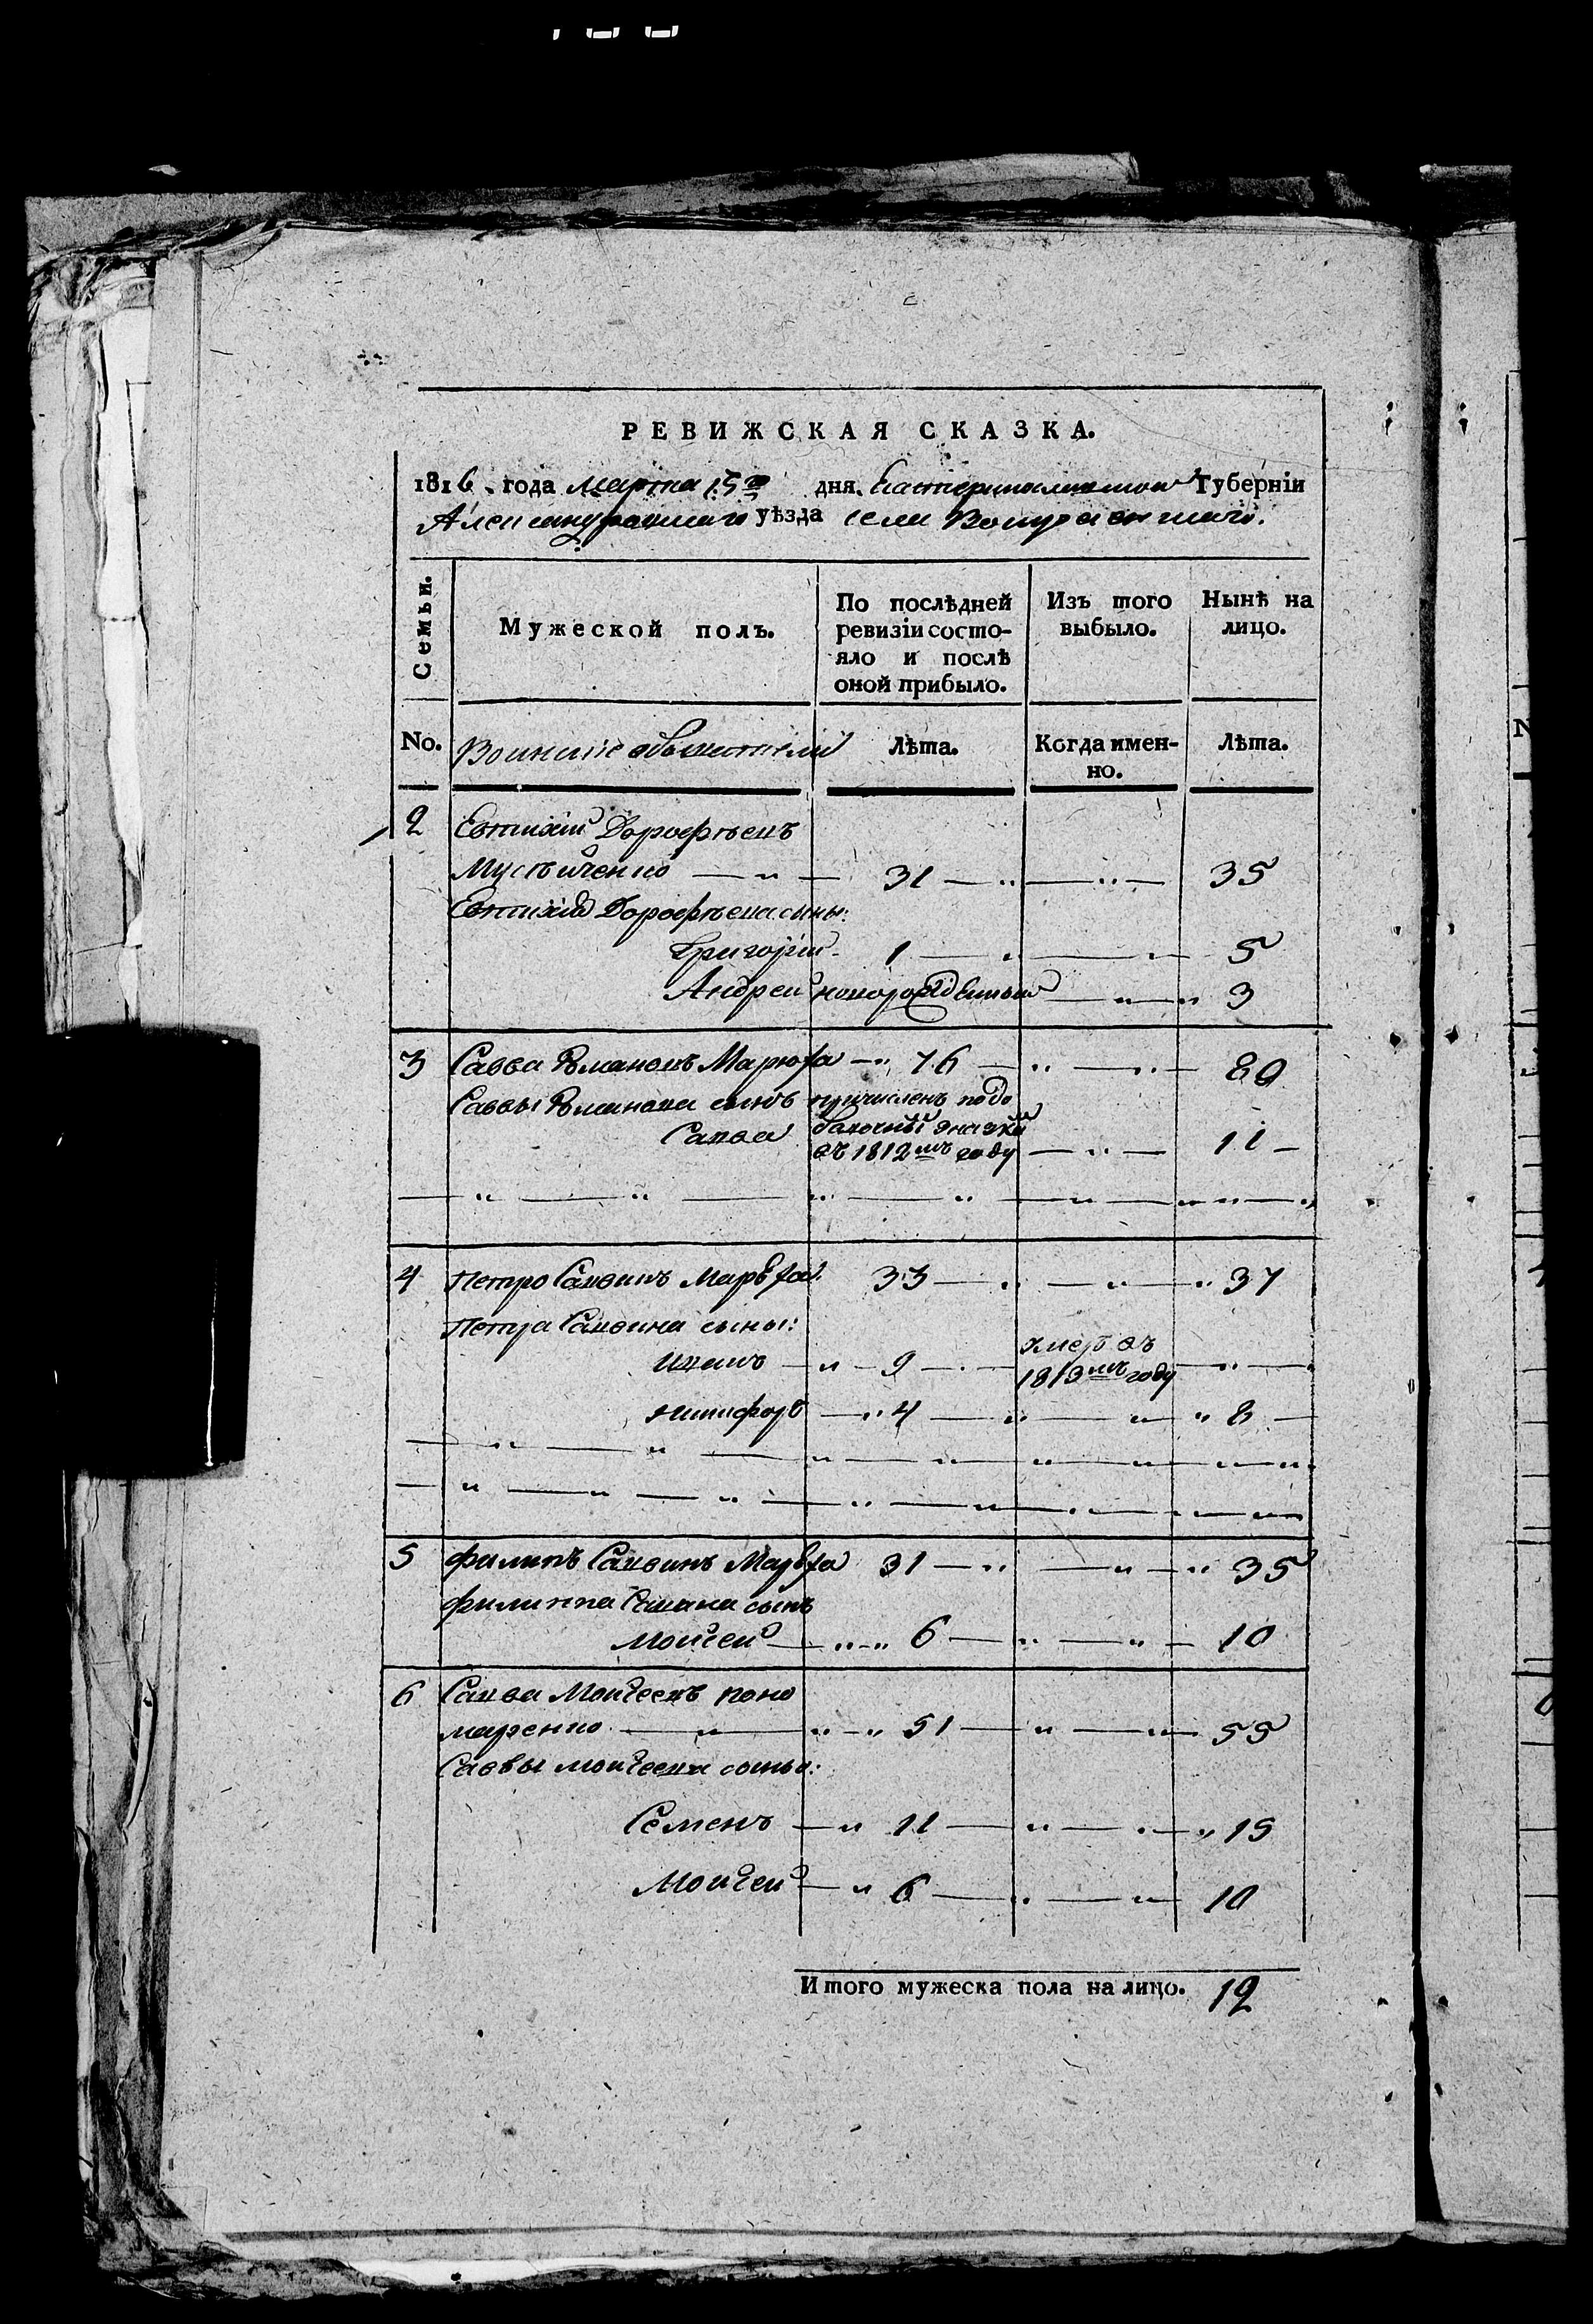 РЕВИЖСКАЯ СКАЗКА.
1816. года Марта 15го дня. Екатеринославской Губерніи
Александровскаго уѣзда села
Семьи.
Мужеской полъ.
По послѣдней
ревизіи состо-
яло и послѣ
оной прибыло.
Изъ того
выбыло.
Нынѣ на
лицо.
No. Воинские обыватели Лѣта. Когда имен-
но. Лѣта.
2 Евтихій Дорофѣевъ
31 — „ — „ — 35
Евтихія Дорофѣева сыны:
Григорій 1 — „ — „ — 5
Андрей новорожденный — „ — „ 3
3 Савва Романовъ Марюха — „ 76 — „ — „ — 80
Саввы Романова сынъ причисленъ по до
Савва бавочной сказки
въ 1812мъ году — „ — 11 —
4 Петро Саввинъ Марюха. 33 — „ — „ — „ 37
Петра Саввина сыны:
Иванъ — „ — 9 — умеръ въ
1813мъ году — „ —
Никифоръ — „ 4 — „ — „ „ 8 —
5 Филипъ Саввинъ Марюха 31 — „ — „ — „ 35
Филиппа Савина сынъ
Моисей — „ — „ 6 — „ — „ — 10
6 Савва Моисеевъ Поно
маренко — „ — „ — „ 51 — „ — „ — 55
Саввы Моисеева сыны:
Семенъ — „ 11 — „ — „ — „ 15
Моисей — „ 6 — „ — „ — 10
Итого мужеска пола на лицо. 12